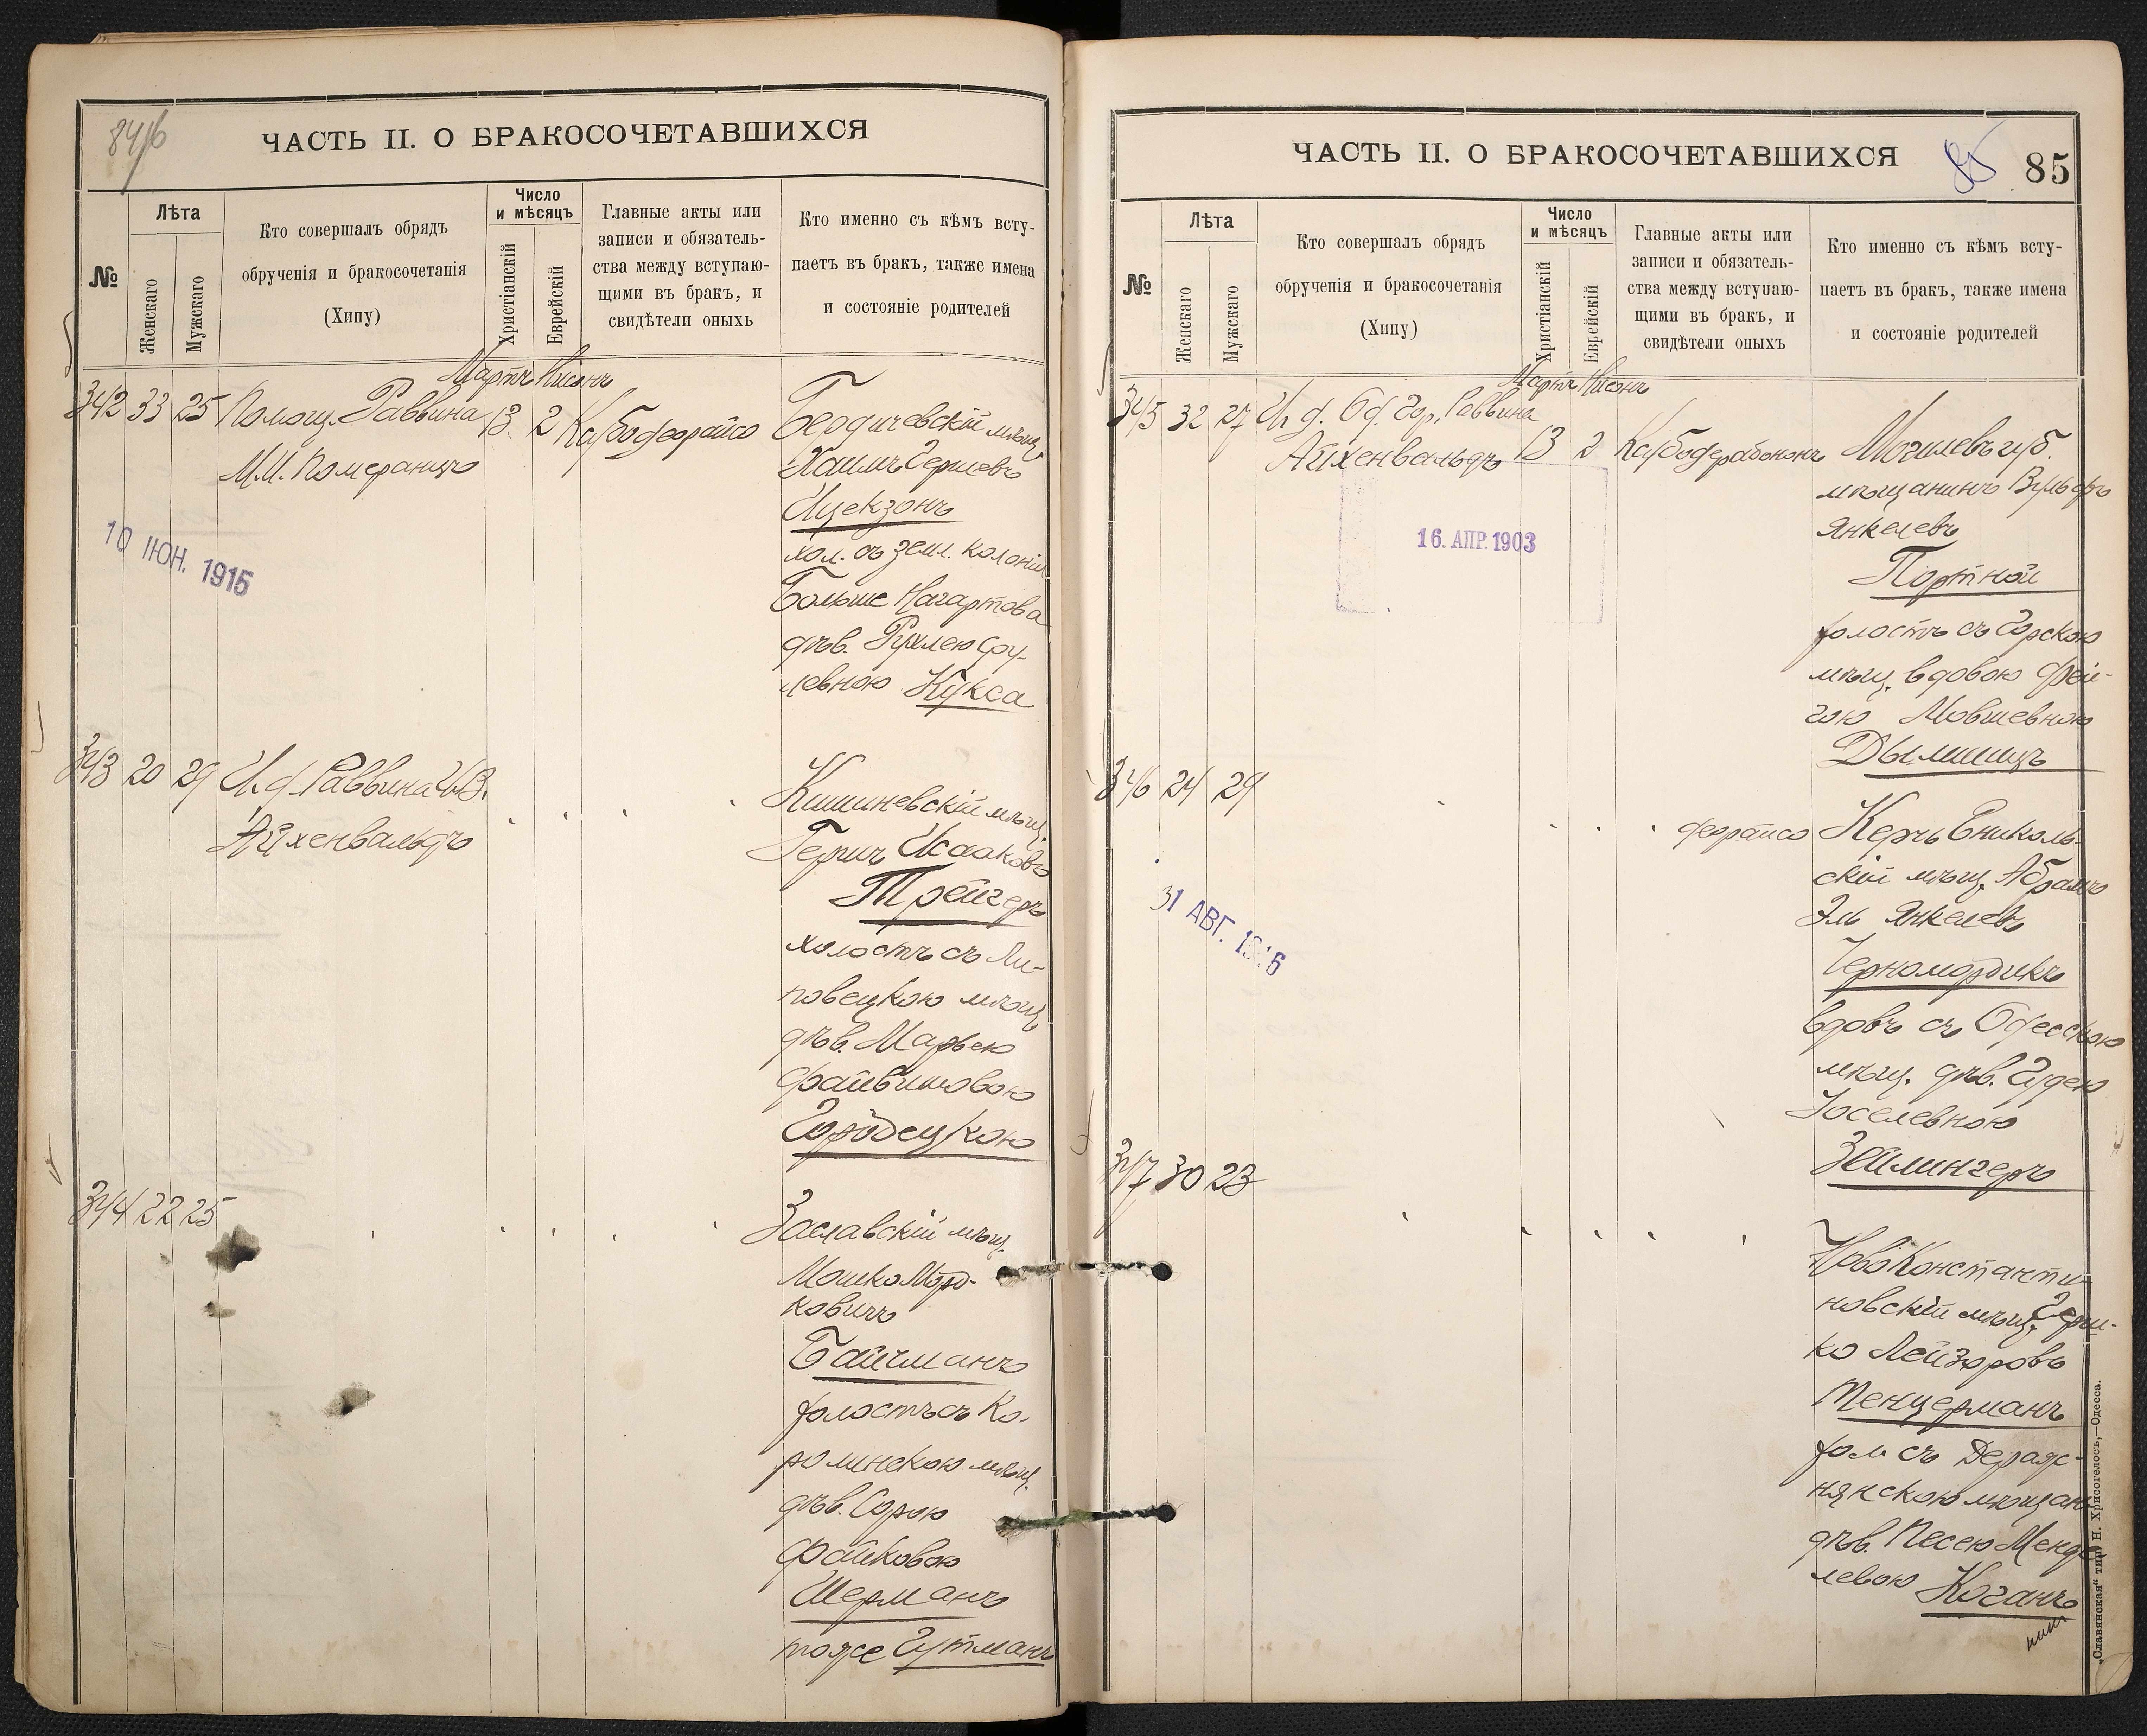 84/6
ЧАСТЬ II. О БРАКОСОЧЕТАВШИХСЯ
№
Лѣта
Женскаго
Мужскаго
Кто совершалъ обрядъ
обрученія и бракосочетанія
(Хипу)
Число
и мѣсяцъ
Христіанскій
Еврейскій
Главные акты или
записи и обязатель-
ства между вступаю-
щими въ бракъ, и
свидѣтели оныхъ
Кто именно съ кѣмъ всту-
паетъ въ бракъ, также имена
и состояніе родителей
Мартъ Нисонъ
342 33 25 Помощ. Раввина 13 2
М.И. Померанцъ
10 ІЮН. 1915
Бердичевскій мѣщ.
Хаимъ Гершевъ
Ицекзонъ
хол. съ земл. колоніи
Больше Нагартова
дѣв. Рухлею Сру-
левною Кукса
343 20 29 И. д. Раввина И.В.
Айхенвальдъ
Кишиневскій мѣщ.
Гершъ Исааковъ
Трейгеръ
холостъ съ Ли-
повецкою мѣщ.
дѣв. Марьею
Файвишовою
Городецкою
344 22 25
Заславскій мѣщ.
Мошко Мор-
ковичъ
Байчманъ
холостъ съ Ко-
ролинскою мѣщ.
дѣв. Сорою
Файковою
Шерманъ
тоже Гутманъ
ЧАСТЬ II. О БРАКОСОЧЕТАВШИХСЯ
85 85
№
Лѣта
Женскаго
Мужскаго
Кто совершалъ обрядъ
обрученія и бракосочетанія
(Хипу)
Число
и мѣсяцъ
Христіанскій
Еврейскій
Главные акты или
записи и обязатель-
ства между вступаю-
щими въ бракъ, и
свидѣтели оныхъ
Кто именно съ кѣмъ всту-
паетъ въ бракъ, также имена
и состояніе родителей
Мартъ Нисонъ
345 32 27 И. д. Од. Гор. Раввина
Айхенвальдъ 13 2
16. АПР. 1903
Могилевъ губ.
мѣщанинъ Вульфъ
Янкелевъ
Портной
холостъ съ Горскою
мѣщ. вдовою Фей-
гою Мовшевною
Дымшицъ
346 24 29
31 АВГ. 1916
Керчь Ениколь-
скій мѣщ. Абрамъ
Эль Янкелевъ
Черномордикъ
вдовъ съ Одесскою
мѣщ. дѣв. Гудею
Іоселевною
Зейлингеръ
347 30 23
НовоКонстанти-
новскій мѣщ. Герш-
ко Лейзоровъ
Тенцерманъ
хол. съ Дераж-
нянскою мѣщан.
дѣв. Песею Менде
левою Коганъ
„Славянская“ тип. Н. Хрисогелосъ,—Одесса.